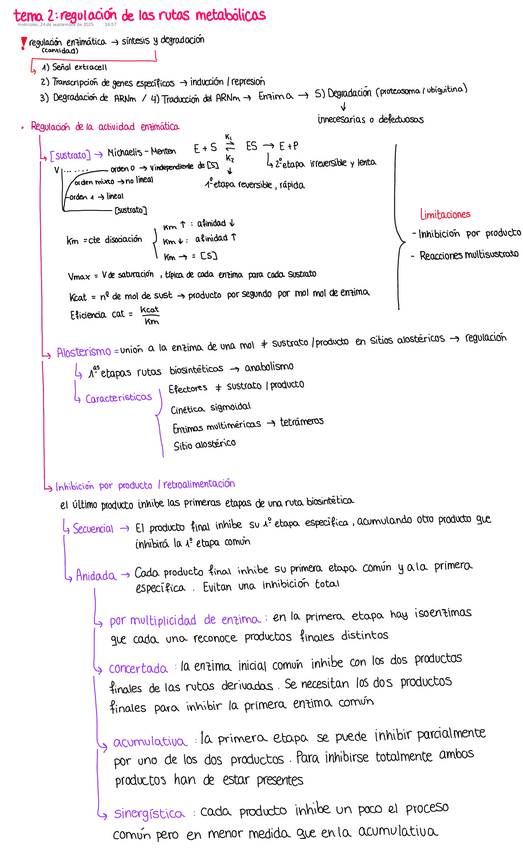 tema 2: regulación de las rutas metabólicas
miércoles, 24 de septiembre de 2025 16:57
! regulación enzimática → síntesis y degradación
(cantidad)
1) Señal extracell
2) Transcripción de genes específicos → inducción / represión
3) Degradación de ARNm / 4) Traducción del ARNm → Enzima → 5) Degradación (proteasoma / ubiquitina)
innecesarias o defectuosas
• Regulación de la actividad enzimática
[sustrato] → Michaelis-Menten E + S ⇌ ES → E + P
K1
K2
2ª etapa irreversible y lenta
1ª etapa reversible, rápida
V
orden 0 → v independiente de [S]
orden mixto → no lineal
orden 1 → lineal
[sustrato]
Km = cte disociación
Km ↑ : afinidad ↓
Km ↓ : afinidad ↑
Km → = [S]
Vmax = V de saturación, típica de cada enzima para cada sustrato
Kcat = nº de mol de sust → producto por segundo por mol mol de enzima
Eficiencia cat = Kcat / Km
Limitaciones
- Inhibición por producto
- Reacciones multisustrato
Alosterismo = unión a la enzima de una mol ≠ sustrato / producto en sitios alostéricos → regulación
1as etapas rutas biosintéticas → anabolismo
Características
Efectores ≠ sustrato / producto
Cinética sigmoidal
Enzimas multiméricas → tetrámeros
Sitio alostérico
Inhibición por producto / retroalimentación
el último producto inhibe las primeras etapas de una ruta biosintética
Secuencial → El producto final inhibe su 1ª etapa específica, acumulando otro producto que
inhibirá la 1ª etapa común
Anidada → Cada producto final inhibe su primera etapa común y a la primera
específica. Evitan una inhibición total
por multiplicidad de enzima : en la primera etapa hay isoenzimas
que cada una reconoce productos finales distintos
concertada : la enzima inicial común inhibe con los dos productos
finales de las rutas derivadas. Se necesitan los dos productos
finales para inhibir la primera enzima común
acumulativa : la primera etapa se puede inhibir parcialmente
por uno de los dos productos. Para inhibirse totalmente ambos
productos han de estar presentes
sinergística : cada producto inhibe un poco el proceso
común pero en menor medida que en la acumulativa